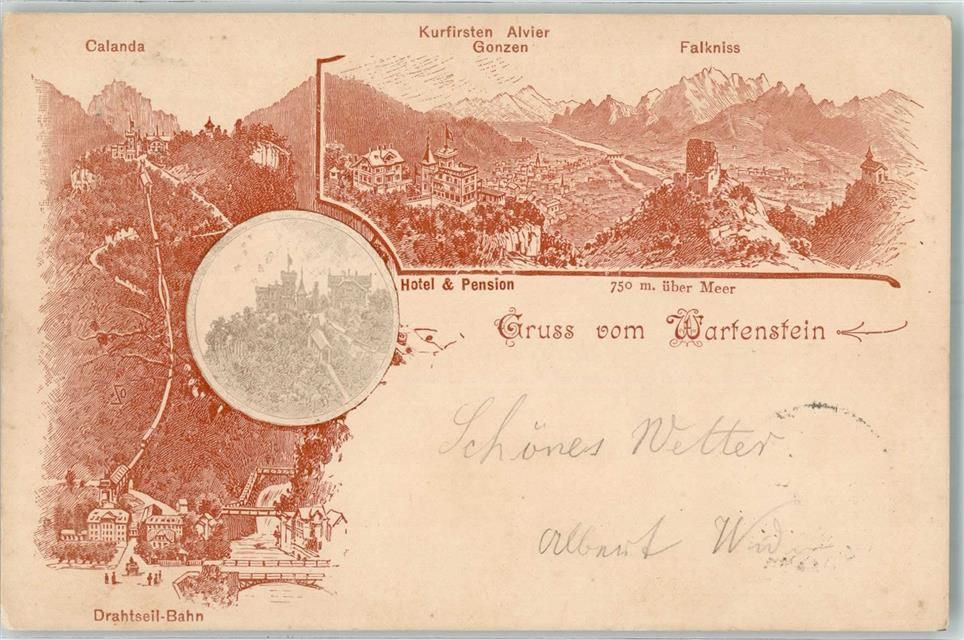 Calanda
Kurfirsten Alvier
Gonzen
Falkniss
Hotel & Pension
750 m. über Meer
Gruss vom Wartenstein
Schönes Wetter.
Albert
Drahtseil-Bahn